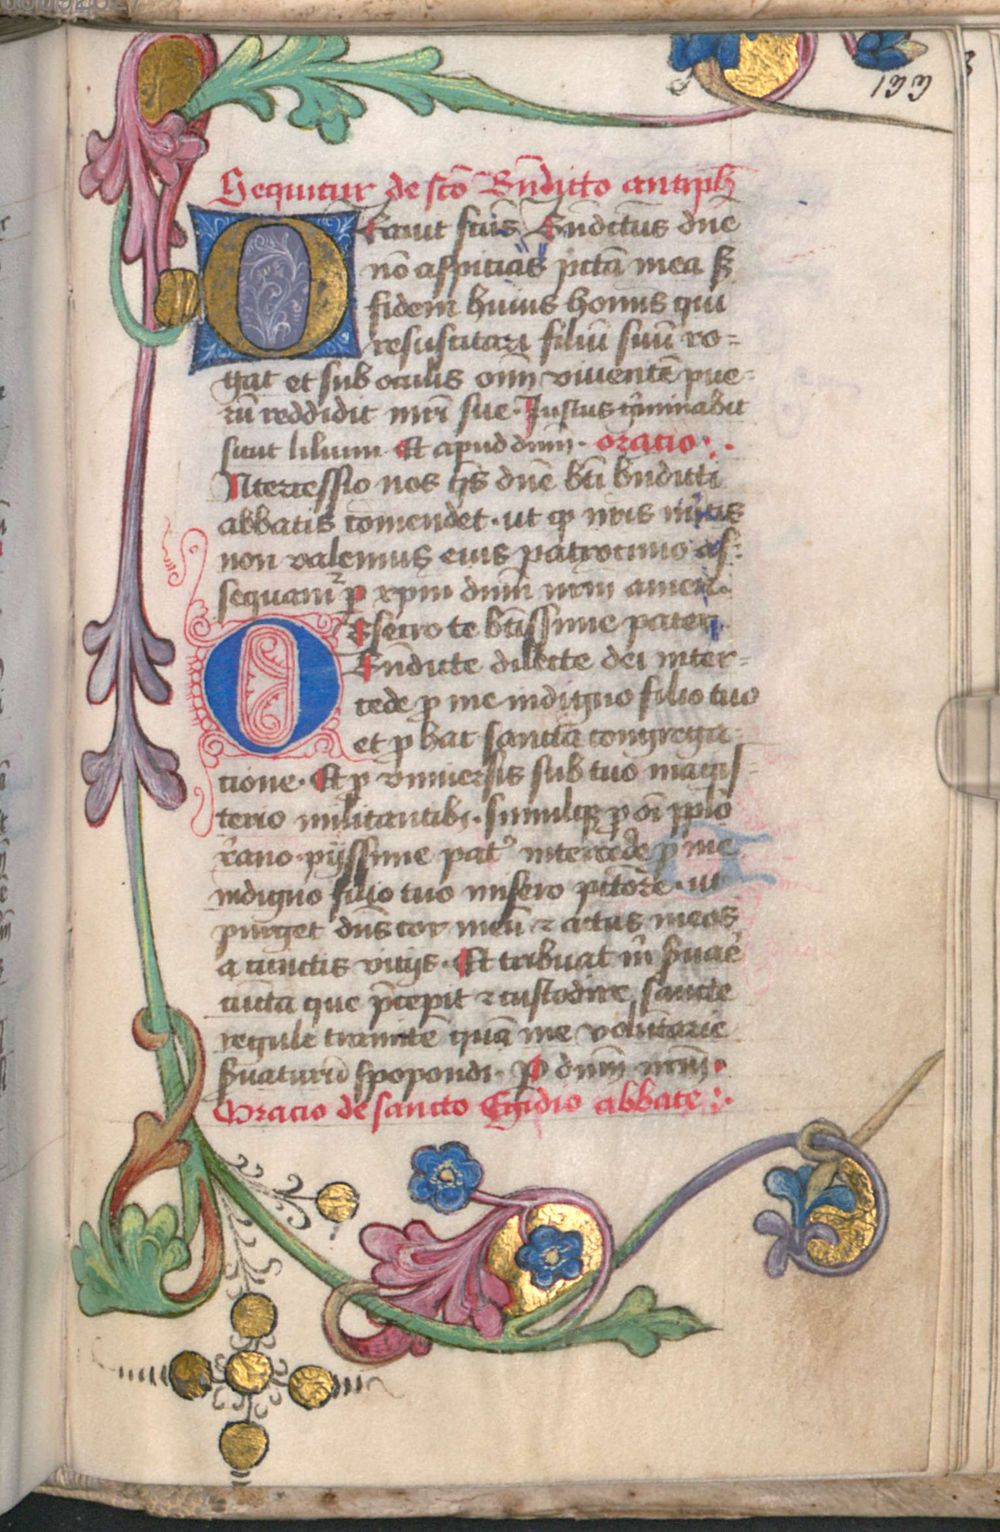 133
Sequitur de scō Bn̄dicto antiph
Orauit scūs Bn̄dictus dn̄e
nō aspicias pctā mea sꝫ
fidem huius homīs qui
resuscitari filiū suū ro⸗
gat et sub oculis om̄ viuentē pue⸗
rū reddidit mr̄i sue. Justus gͤminabit
sicut lilium. Et apud dnm. oracio:.
Intercessio nos qs̄ dn̄e bt̄i bn̄dicti
abbatis comendet. ut qꝫ nr̄is mītis
non valemus eius patrocinio as⸗
sequamᷣ ꝑ xpm dnm̄ nrm̄ amen.
Obsecro te bt̄issime pater
Bn̄dicte dilecte dei inter⸗
cede ꝓ me indigno filio tuo
et ꝓ hac sanctā congrega⸗
cione. Et ꝓ vniuersis sub tuo magis⸗
terio militantibꝫ. similiqꝫ ꝓ oī ppl̄o
xāno. pijssime patᷣ intercede ꝓ me
indigno filio tuo misero pctōre. ut
purget dn̄s cor meū ⁊ actus meos
a cunctis vitijs. Et tribuat m̄ ẜuare
cūcta que p̄cepit ⁊ custodire sancte
regule tramitē quā me volūtarie
ẜuaturū spopondi. ꝑ dnm̄ nrm̄.
Oracio de sancto Egidio abbate:.